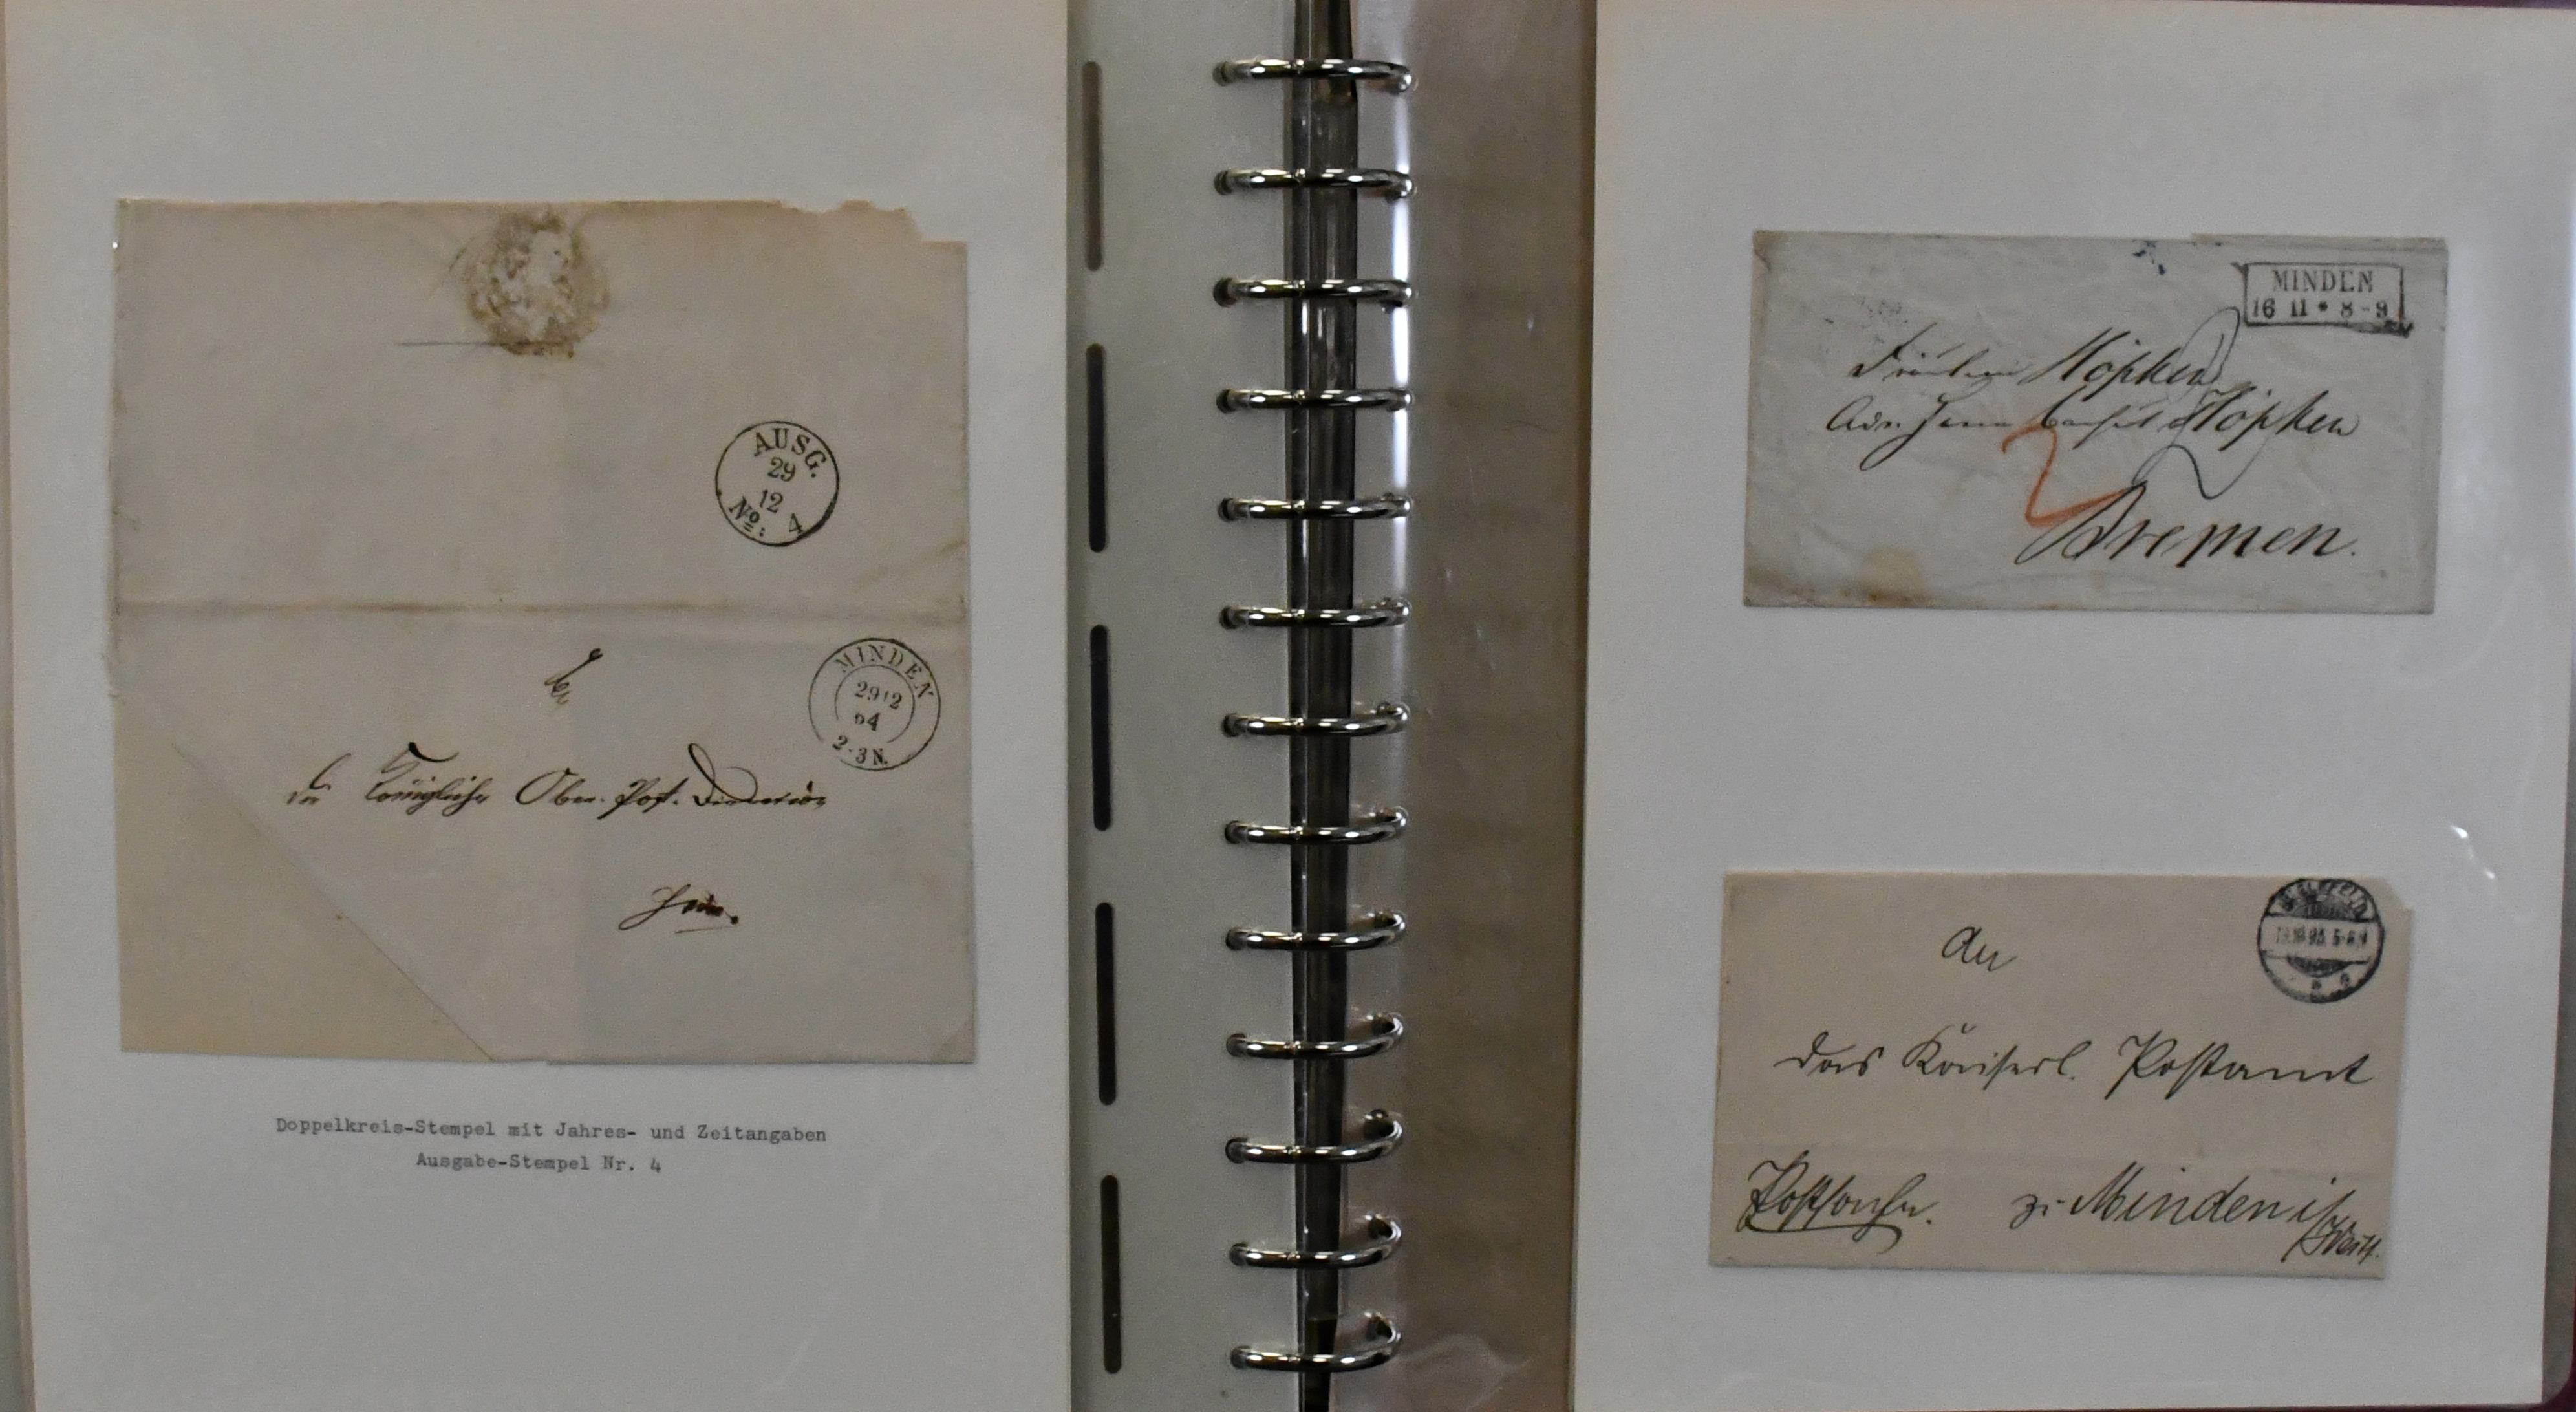 AUSG.
29
12
No: 4
MINDEN
29 12
64
2-3 N.
An
die Königliche Ober-Post-Direction
hier.
Doppelkreis-Stempel mit Jahres- und Zeitangaben
Ausgabe-Stempel Nr. 4
MINDEN
16 11 * 8-9
Fräulein Höpken
Adr. Herrn Consul Höpken
2
Bremen.
BIELEFELD
An
das Kaiserl. Postamt
Postsache. zu Minden i/Westf.